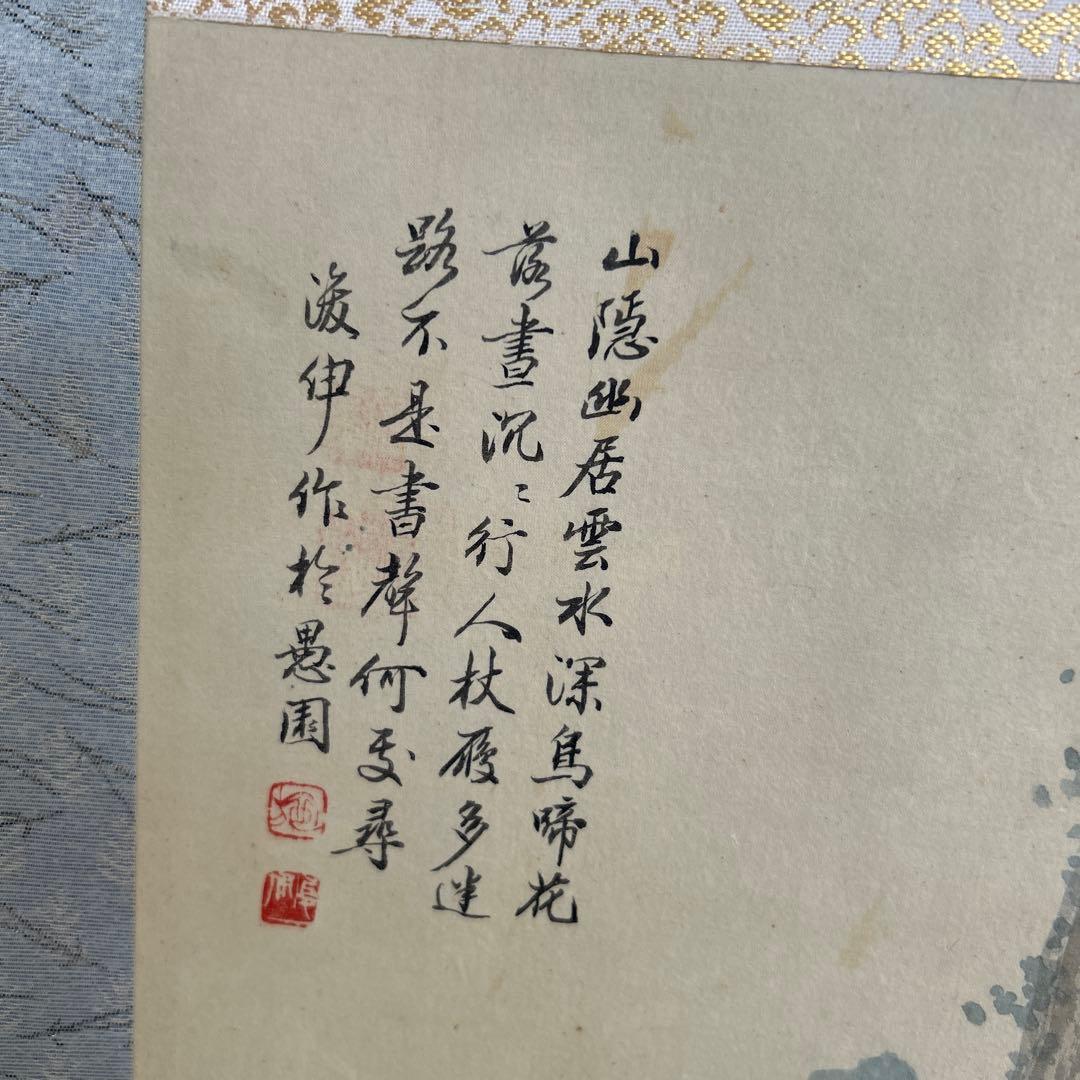 山隱幽居雲水深鳥啼花
落晝沉〻行人杖履多迷
路不是書聲何處尋
浚伸作於愚園